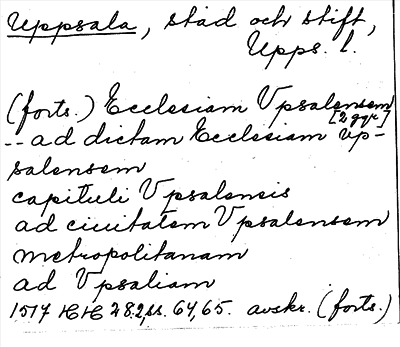 Uppsala, stad och stift,
Upps. l.
(forts.) Ecclesiam Vpsalensem
[2 ggr]
-- ad dictam Ecclesiam vp-
salensem
capituli Vpsalensis
ad ciuitatem Vpsalensem
metropolitanam
ad Vpsaliam
1517 HH 28:2, ss. 64, 65. avskr. (forts.)